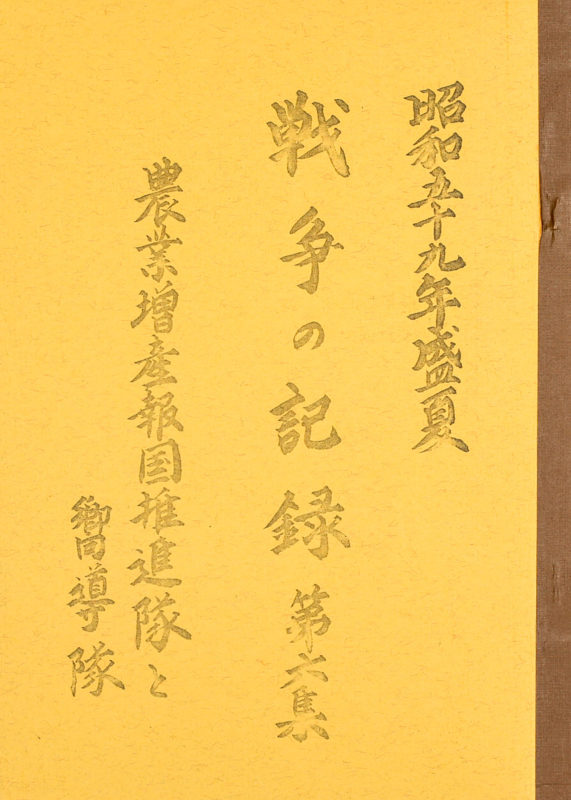 昭和五十九年盛夏
戦争の記録 第六集
農業増産報国推進隊と
嚮導隊